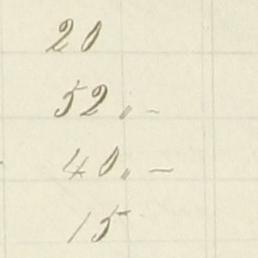 20
52 „ -
40 „ -
15